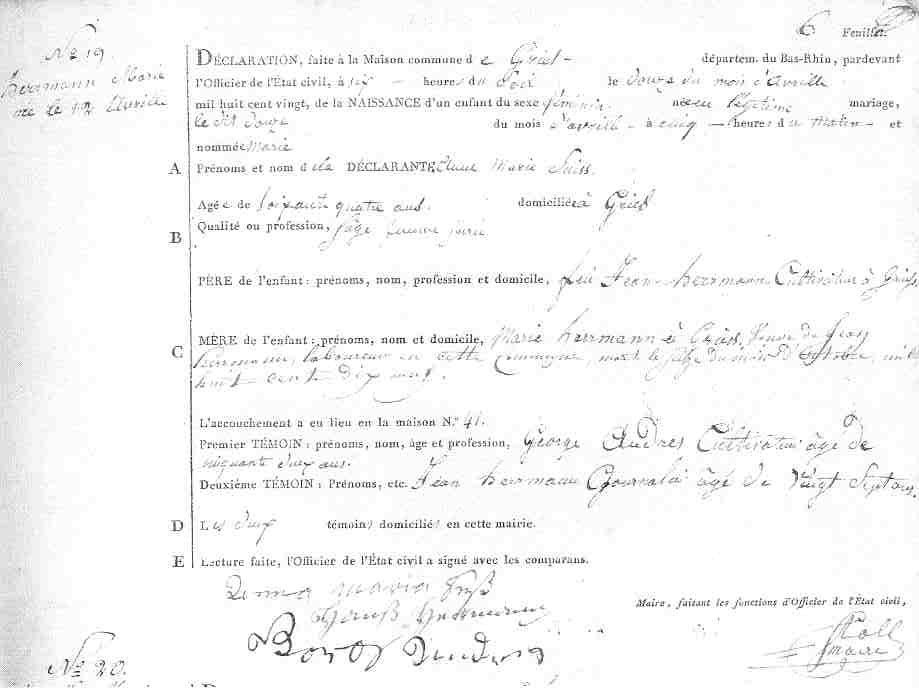 6 Feuillet
Nº 19.
herrmann Marie
née le 12 Avrille
DÉCLARATION, faite à la Maison commune de Gries départem. du Bas-Rhin, pardevant
l'Officier de l'État civil, à six heures du Soir le douze du mois d'avrille
mil huit cent vingt, de la NAISSANCE d'un enfant du sexe féminin née en légitime mariage,
le dit douze du mois d'avrille à cinq heures du Matin et
nommée Marie
A Prénoms et nom de la DÉCLARANTE, Anne Marie Suss.
Agée de soixante quatre ans. domiciliée à Gries
B Qualité ou profession, sage femme jurée
PÈRE de l'enfant : prénoms, nom, profession et domicile, feu Jean herrmann Cultivateur à Gries,
C MÈRE de l'enfant : prénoms, nom et domicile, Marie herrmann à Gries, Veuve de Jean
herrmann, laboureur en cette Commune, mort le seize du mois d'Octobre, mil
huit cent dix neuf.
L'accouchement a eu lieu en la maison N.º 41.
Premier TÉMOIN : prénoms, nom, âge et profession, George Andres Cultivateur âgé de
cinquante deux ans.
Deuxième TÉMOIN : Prénoms, etc. Jean herrmann Journalier âgé de Vingt Sept ans,
D Les deux témoins domiciliés en cette mairie.
E Lecture faite, l'Officier de l'État civil a signé avec les comparans.
Anna Maria Süß
Hanß Herrmann
Maire, faisant les fonctions d'Officier de l'État civil,
maire
Nº 20.